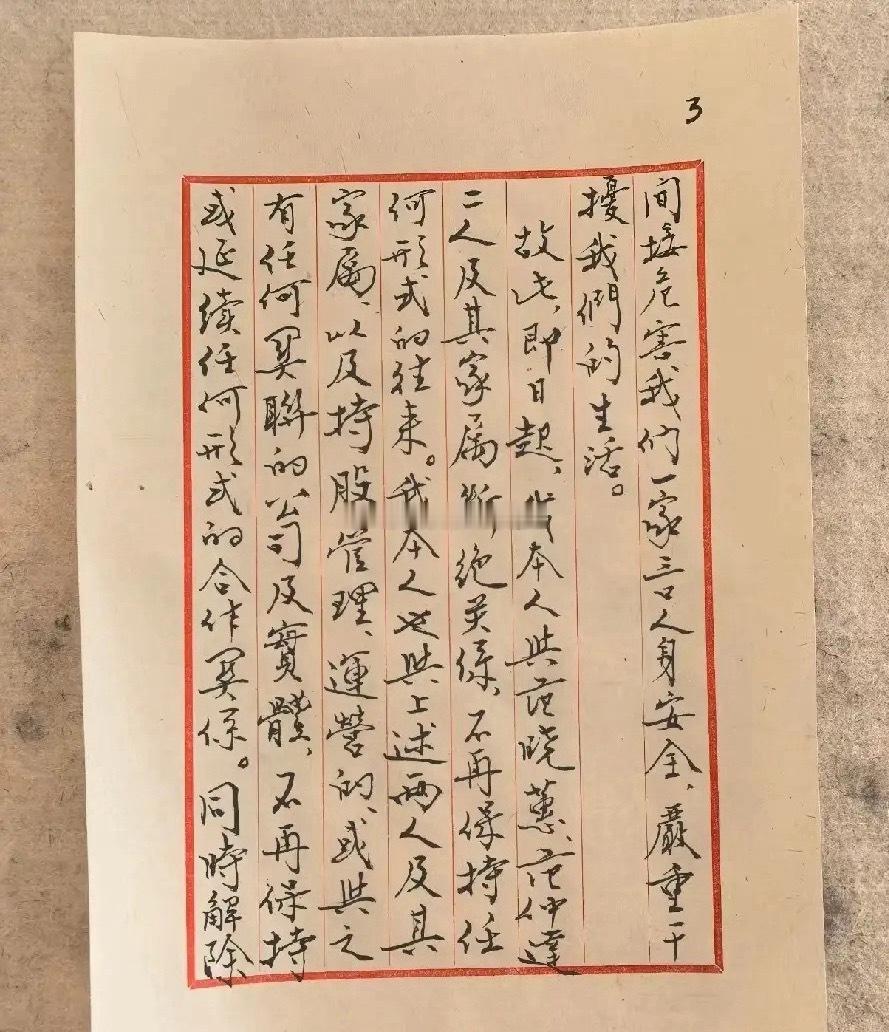 3
间接危害我们一家三口人身安全、嚴重干
擾我們的生活。
故此，即日起、我本人與范晓蕙、范仲達
二人及其家属断绝关係，不再保持任
何形式的往来。我本人也與上述两人及其
家属、以及持股管理、運營的、或與之
有任何関聯的公司及實體、不再保持
或延續任何形式的合作関係。同時解除